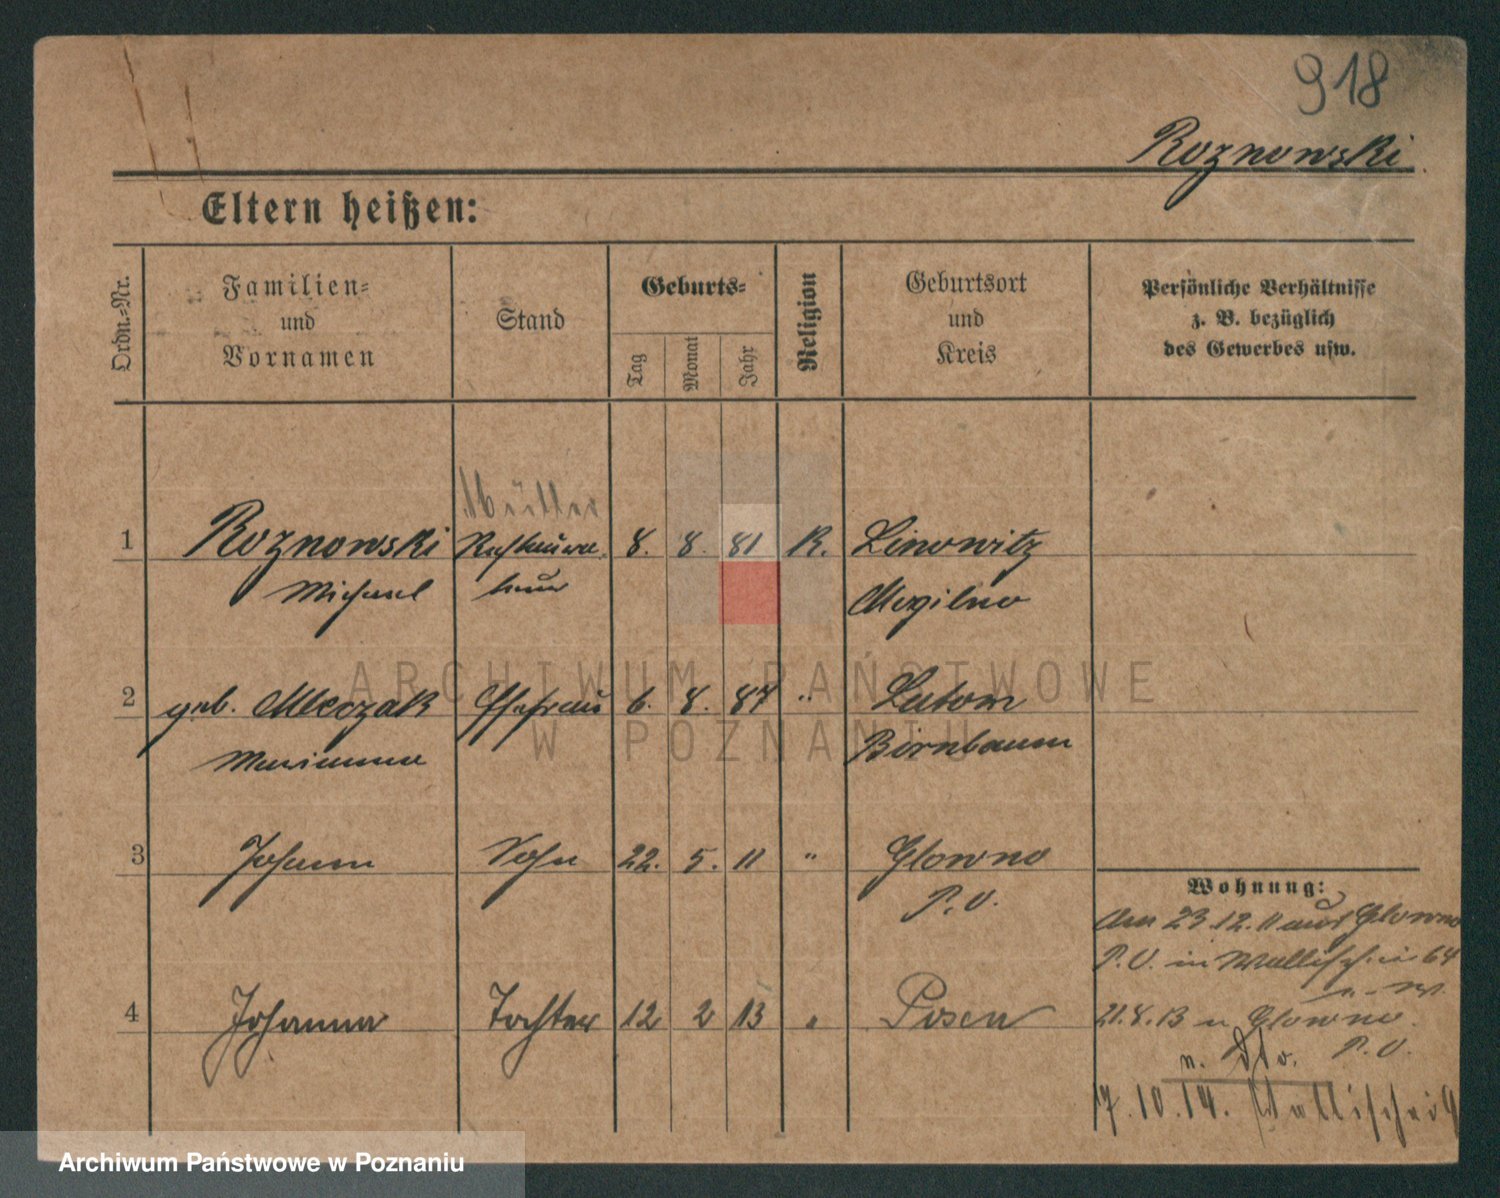 918
Roznowski
Eltern heißen:
Ordn.-Nr.
Familien-
und
Vornamen
Stand
Geburts-
Tag
Monat
Jahr
Religion
Geburtsort
und
Kreis
Persönliche Verhältnisse
z. B. bezüglich
des Gewerbes usw.
Müller
1 Roznowski 8. 8. 81 K. Linowitz
Michael Mogilno
2 geb. Mleczak Ehefrau 6. 8. 87 " Lutom
Marianna Birnbaum
3 Johann Sohn 22. 5. 11 " Glowno
P. O.
4 Johanna Tochter 12 2 13 " Posen
Wohnung:
Am 23.12.11 aus Glowno
P. O. in Wallischei 64
21.8.13 n Glowno.
P. O.
n. dto.
17.10.14. Wallischei
ARCHIWUM PAŃSTWOWE
W POZNANIU
Archiwum Państwowe w Poznaniu